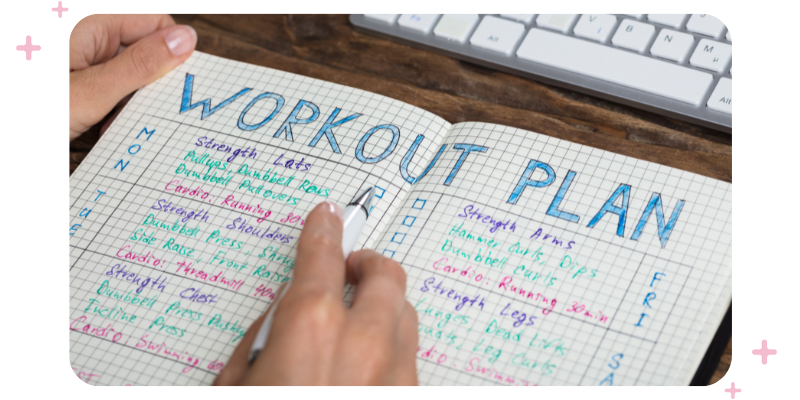 WORKOUT PLAN
MON
Strength Lats
Pullups, Dumbbell Rows
Dumbbell Pullovers
Cardio: Running 30
TUE
Strength Shoulders
Dumbbell Press
Side Raise, Front Raise
Cardio: Threadmill 40
Strength Chest
Dumbbell Press
Incline Press
Cardio Swimming
FRI
Strength Arms
Hammer Curls, Dips
Dumbbell Curls
Cardio: Running 30min
SA
Strength Legs
Dead Lifts
Leg Curls
Alt
V
B
N
M
Alt